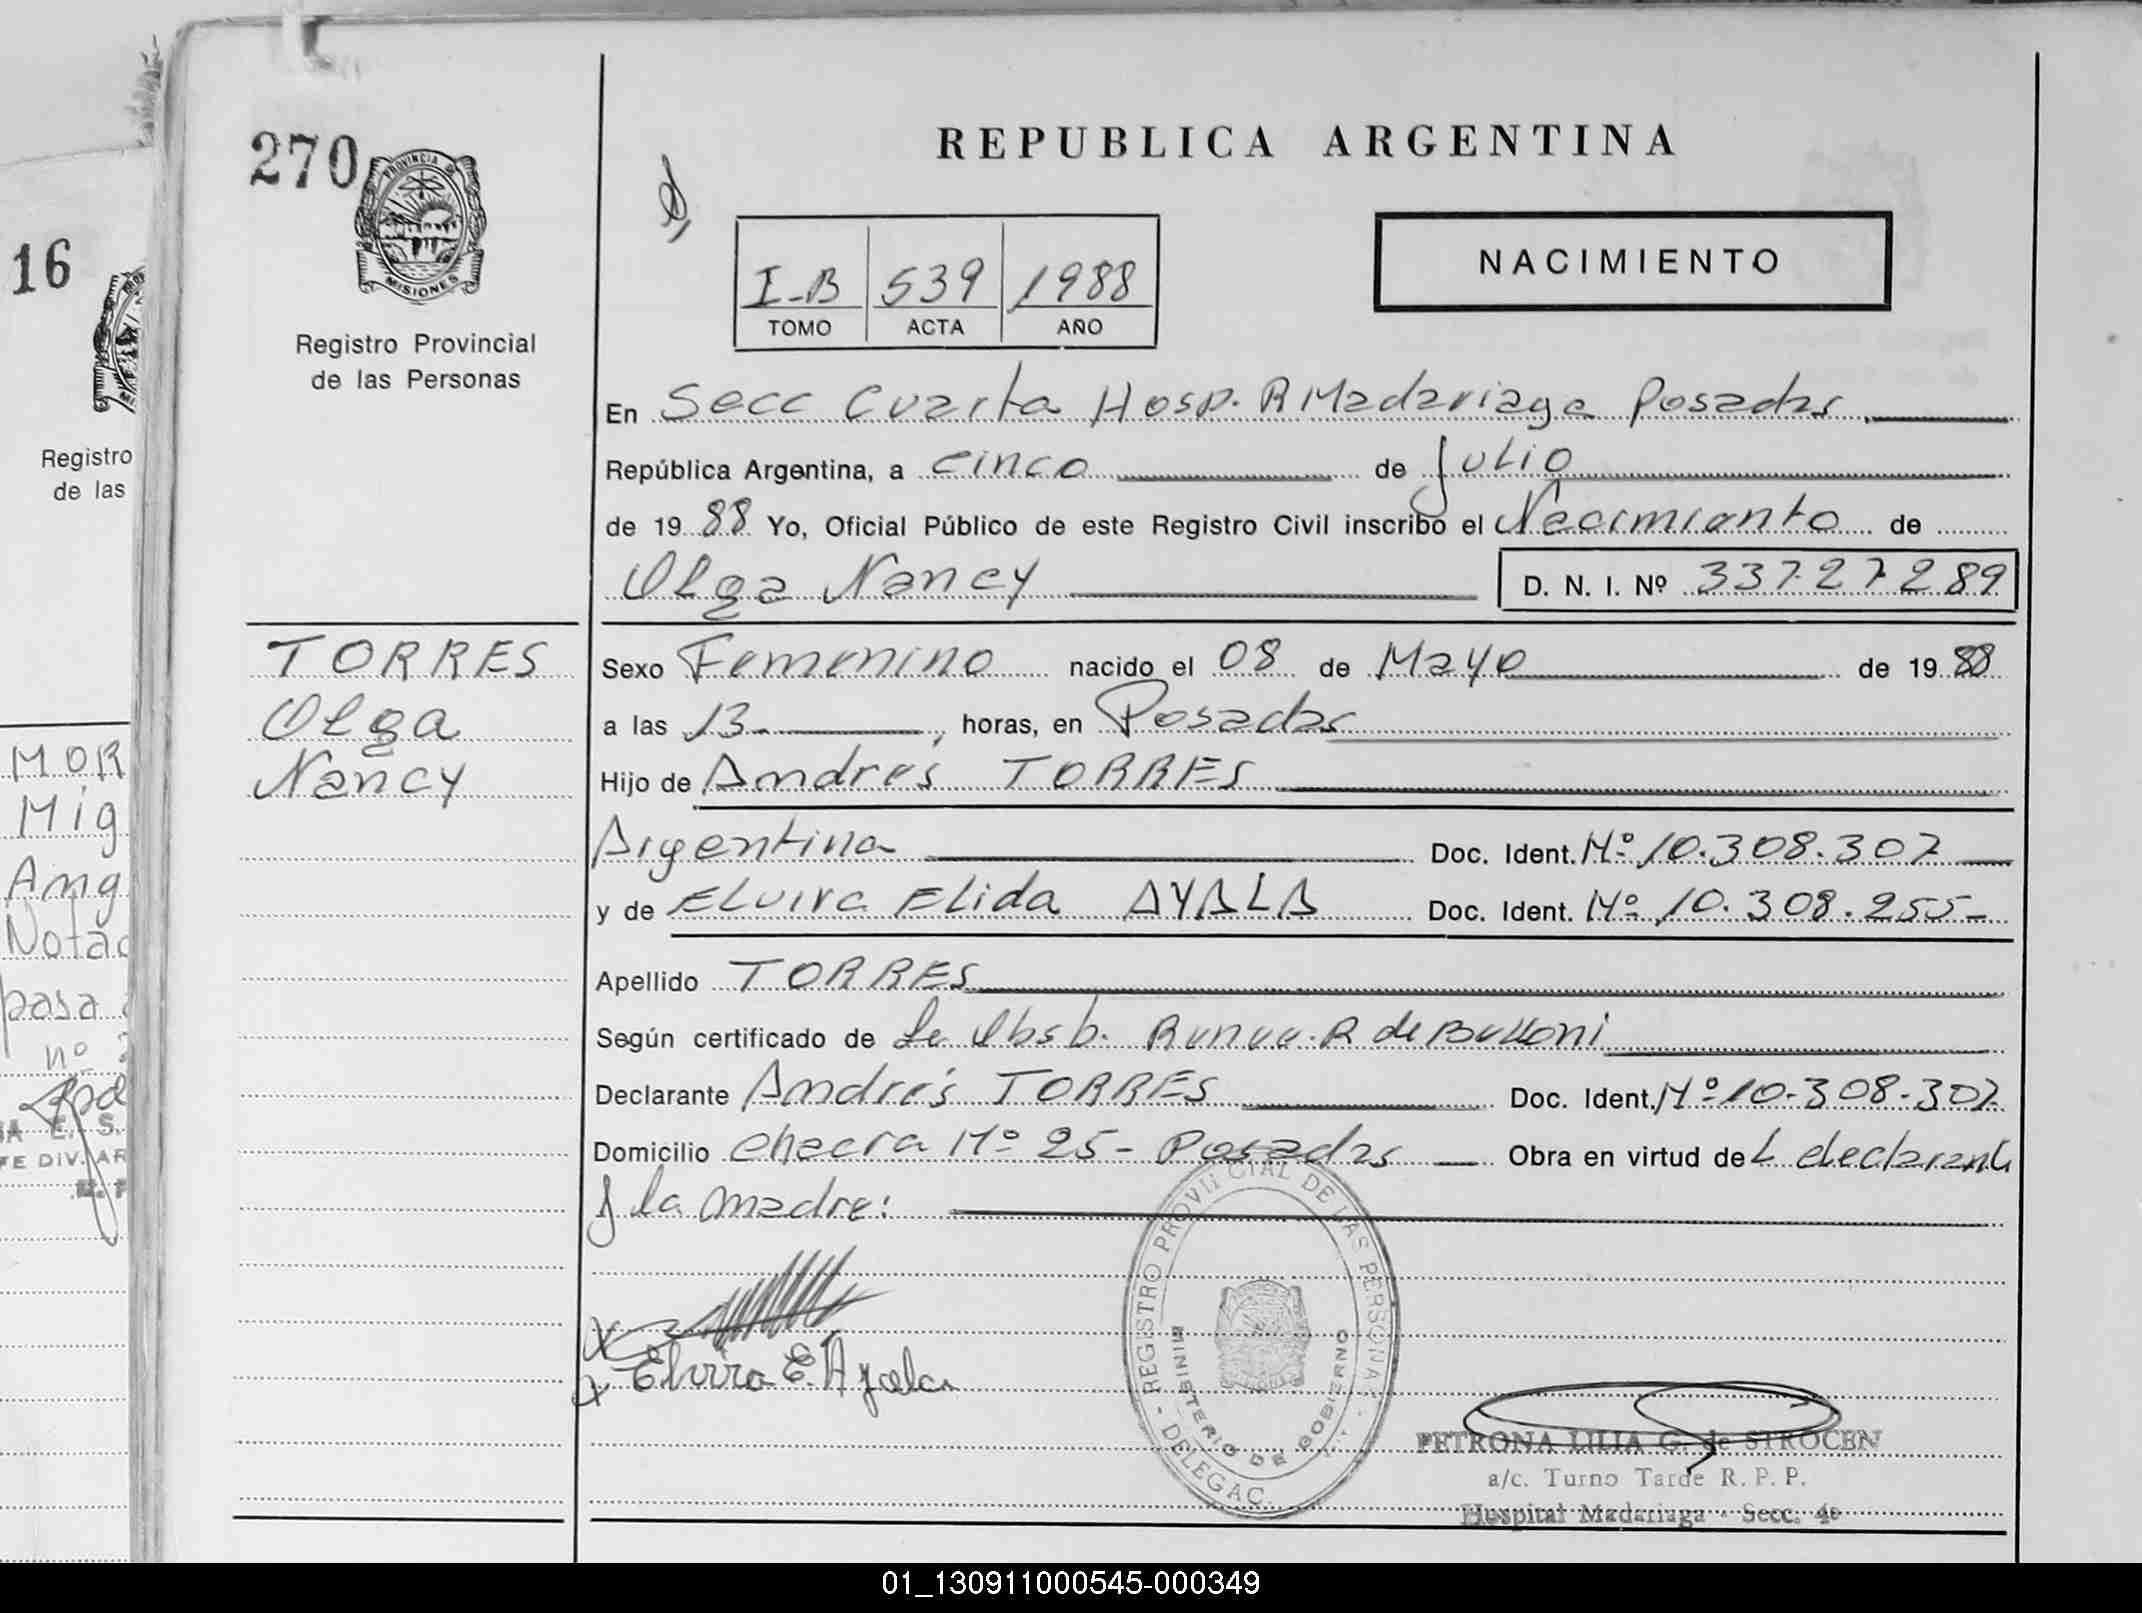 270
PROVINCIA DE
MISIONES
Registro Provincial
de las Personas
TORRES
Olga
Nancy
REPUBLICA ARGENTINA
I-B 539 1988
TOMO ACTA AÑO
NACIMIENTO
En Secc Cuarta Hosp. R Madariaga Posadas
República Argentina, a cinco de Julio
de 1988 Yo, Oficial Público de este Registro Civil inscribo el Nacimiento de
Olga Nancy D. N. I. Nº 33727289
Sexo Femenino nacido el 08 de Mayo de 1988
a las 13 horas, en Posadas
Hijo de Andres TORRES
Argentina Doc. Ident. Nº 10.308.307
y de Elvira Elida AYALA Doc. Ident. Nº 10.308.255-
Apellido TORRES
Según certificado de La Obsb. R de
Declarante Andrés TORRES Doc. Ident. Nº 10.308.307
Domicilio chacra Nº 25 - Posadas Obra en virtud del declarante
y la madre:
x
x Elvira E. Ayala
REGISTRO PROVINCIAL DE LAS PERSONAS
MINISTERIO DE GOBIERNO
- DELEGAC.
PETRONA LILIA G. de STROCEN
a/c. Turno Tarde R. P. P.
Hospital Madariaga - Secc. 4º
16
Registro
de las
MOR
Mig
Ang
Nota
pasa
nº
E. S.
DIV. AR
01_130911000545-000349